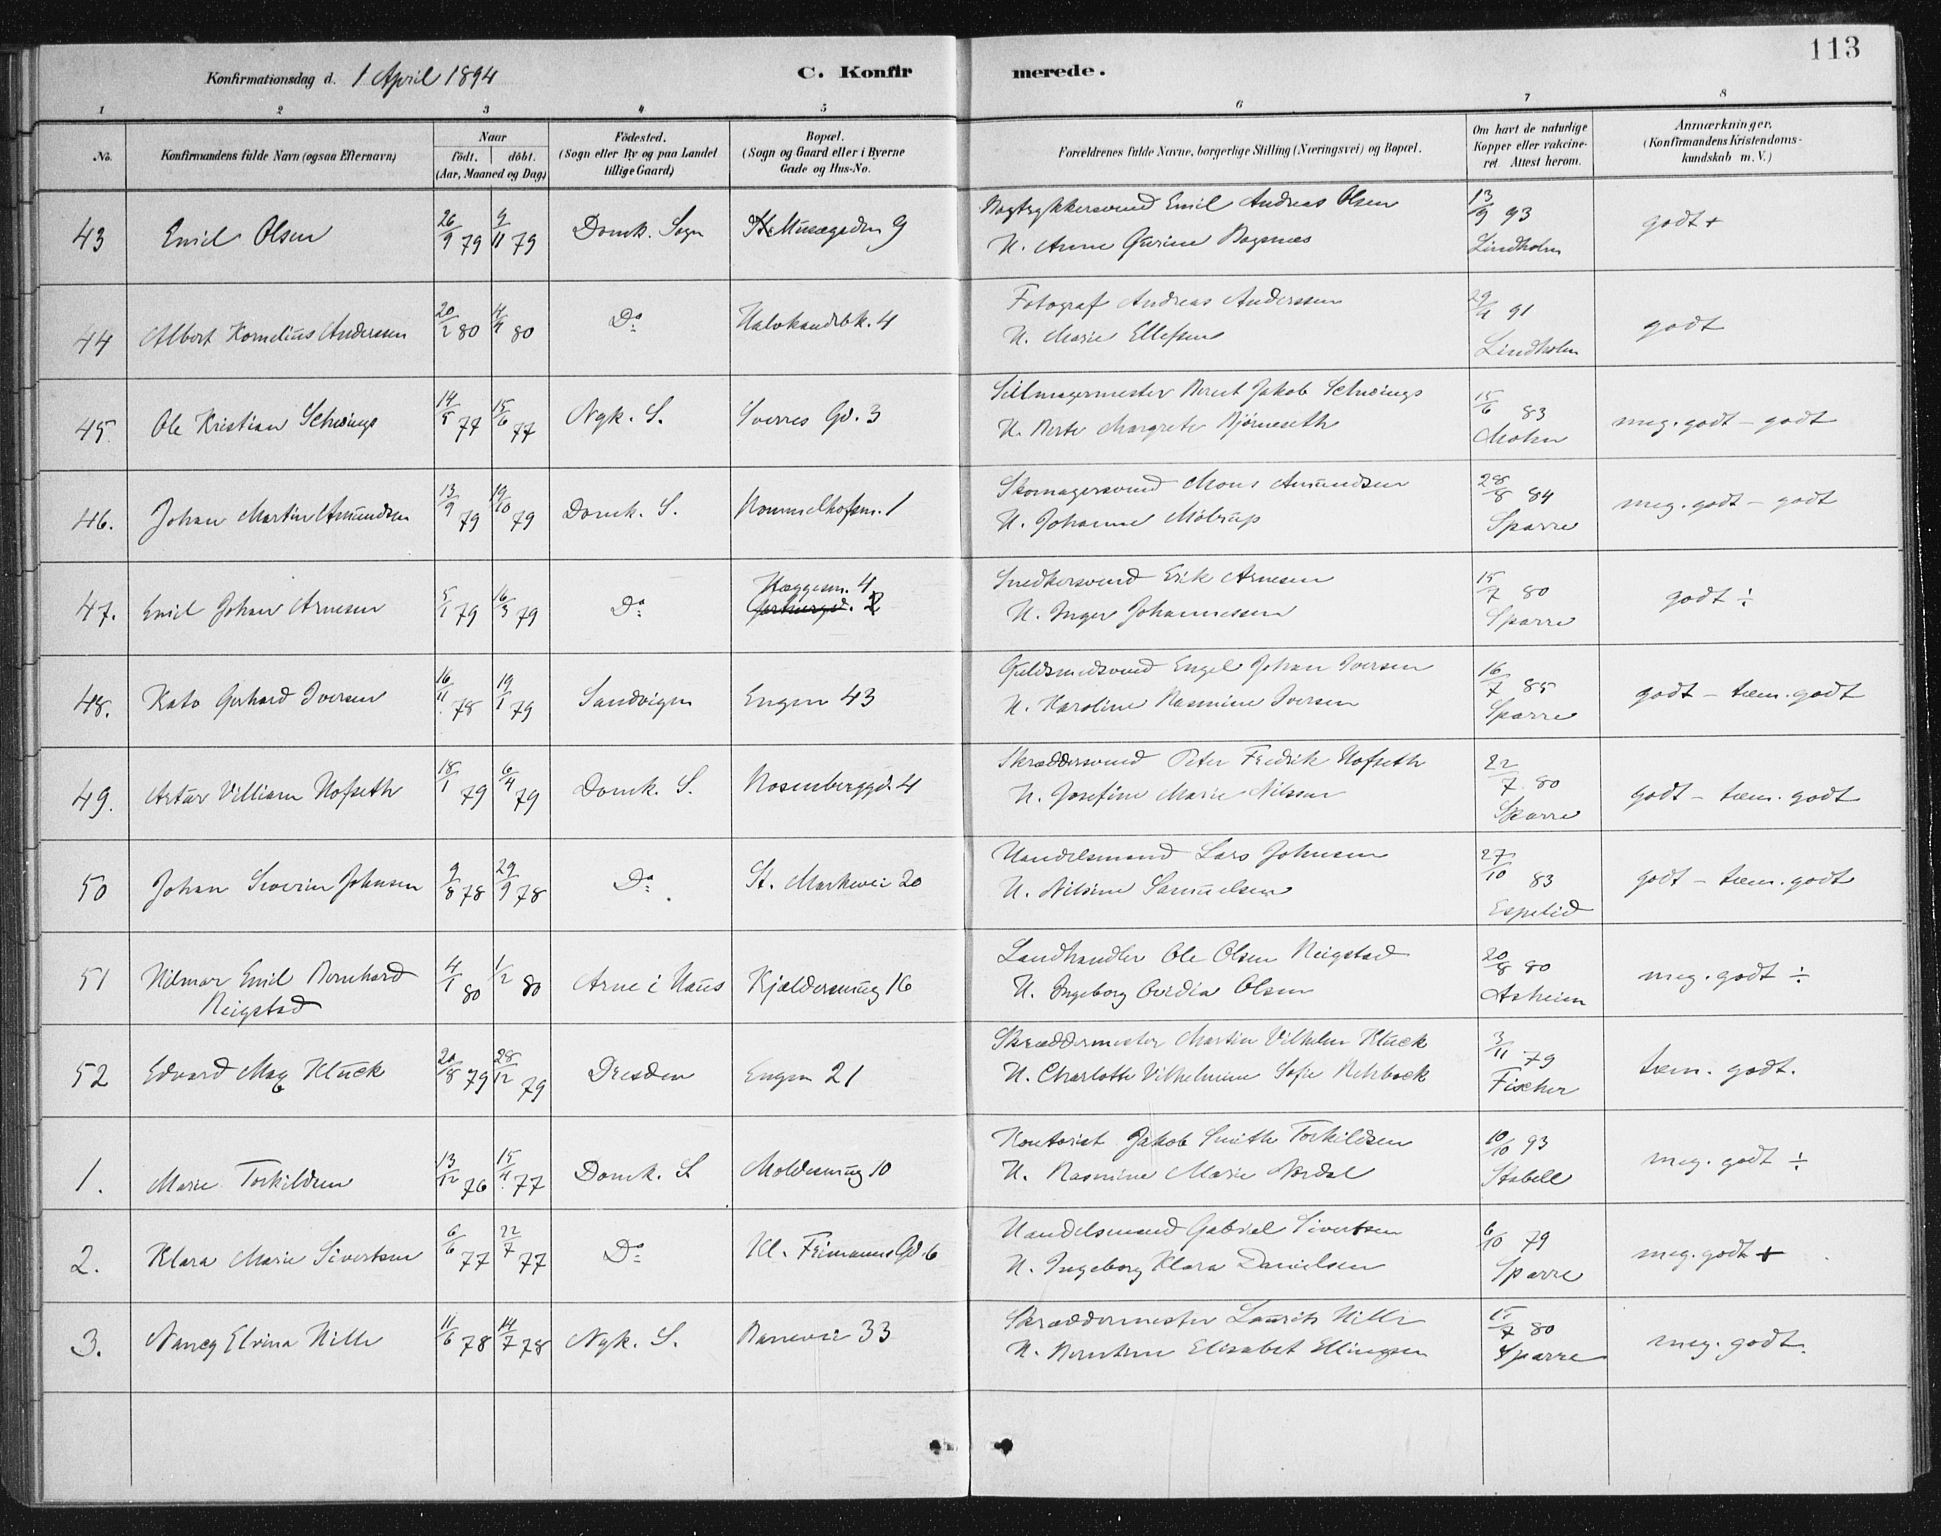 113
Konfirmationsdag d. 1 April 1894 C. Konfirmerede.
1 2 3 4 5 6 7 8
No. Konfirmandens fulde Navn (ogsaa Efternavn) Naar födt. döbt. (Aar, Maaned og Dag) Födested. (Sogn eller By og paa Landet tillige Gaard) Bopæl. (Sogn og Gaard eller i Byerne Gade og Hus-No. Forældrenes fulde Navne, borgerlige Stilling (Næringsvei) og Bopæl. Om havt de naturlige Kopper eller vaccineret. Attest herom. Anmærkninger. (Konfirmandens Kristendomskundskab m. V.)
43 Emil Olsen 26/9 79 9/11 79 Domk. Sogn Musægaden 9 Bogtrykkersvend Emil Andreas Olsen 13/9 93 godt +
H. Anne Gurine Bogsnes Lindholm
44 Albert Kornelius Anderssen 20/2 80 4/4 80 Do Halvkandebk. 4 Fotograf Andreas Anderssen 29/4 91 godt
H. Marie Ellefsen Lindholm
45 Ole Kristian Schwings 14/5 77 15/6 77 Nyk. S. Sverres Gd. 3 Seilmagermester Berent Jakob Schwings 15/6 83 meg. godt – godt
H. Berte Margrete Bjørneseth Mohn
46. Johan Martin Amundsen 13/9 79 19/10 79 Domk. S. Rommelhofsm. 1 Skomagersvend Mons Amundsen 28/8 84 meg. godt – godt
H. Johanne Möbrup Sparre
47. Emil Johan Arnesen 5/1 79 16/3 79 Do Hæggesm. 4 Snedkersvend Erik Arnesen 15/7 80 godt ÷
H. Inger Johannessen Sparre
48. Kato Gerhard Iversen 16/11 78 19/1 79 Sandvigen Engen 43 Guldsmedsvend Engel Johan Iversen 16/7 85 godt – tem. godt
H. Karoline Rasmine Iversen Sparre
49. Artur Villiam Hofseth 18/1 79 6/4 79 Domk. S. Rosenberggd. 4 Skræddersvend Peter Fredrik Hofseth 22/7 80 godt – tem. godt
H. Josefine Marie Nilssen Sparre
50 Johan Severin Johnsen 9/8 78 29/9 78 Do St. Markevei 20 Handelsmand Lars Johnsen 27/10 83 godt – tem. godt
H. Nilsine Samuelsen Espelid
51 Hilmar Emil Bernhard Reigstad 4/1 80 1/2 80 Arne i Haus Kjældersmug 16 Landhandler Ole Olsen Reigstad 20/8 80 meg. godt ÷
H. Ingeborg Ovidia Olsen Asheim
52 Edvard Max Kluck 20/8 79 28/12 79 Dresden Engen 21 Skræddermester Martin Vilhelm Kluck 3/11 79 tem. godt.
H. Charlotte Vilhelmine Sofie Rehbock Fischer
1. Marie Torkildsen 13/12 76 15/4 77 Domk. S Moldesmug 10 Kontorist Jakob Smith Torkildsen 10/10 93 meg. godt ÷
H. Rasmine Marie Nordal Stabell
2. Klara Marie Sivertsen 6/6 77 22/7 77 Do Kl. Freimanns Gd. 6 Handelsmand Gabriel Sivertsen 6/10 79 meg. godt +
H. Ingeborg Klara Danielsen Sparre
3. Nancy Elvina Hille 11/6 78 14/7 78 Nyk. S. Banevei 33 Skræddermester Laurits Hille 15/7 80 meg. godt.
H. Berntine Elisabet Ellingsen Sparre